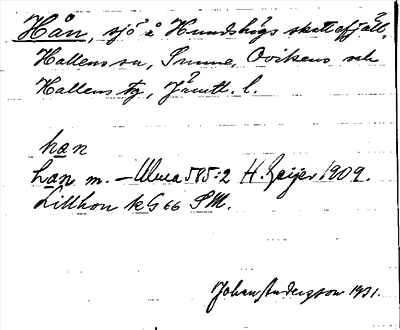 Hån, sjö å Hundshögs skattefjäll,
Hallens sn, Sunne, Ovikens och
Hallens tg, Jämtl. l.
han
han m. – Ulma 585:2 H. Geijer 1909.
Lillhon k G 66 SM.
Johan Andersson 1931.